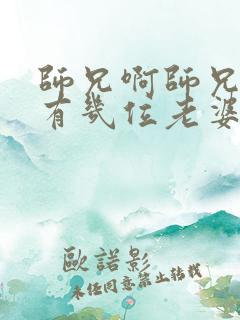 師兄啊師兄
有幾位老婆
歐諾影
未任同意禁止转载